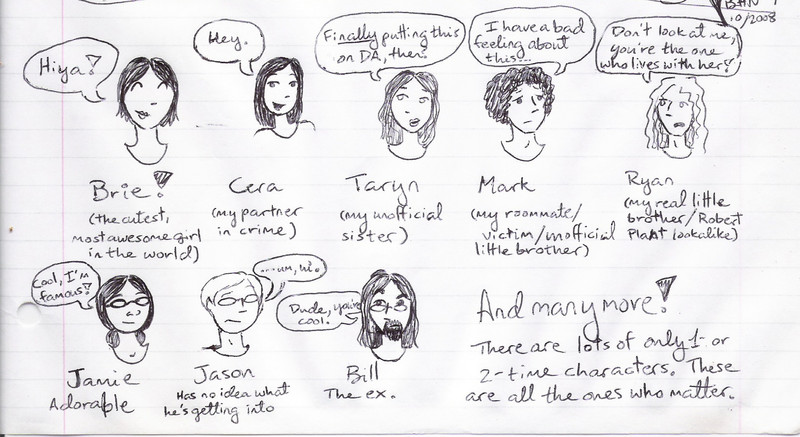 BHN
10/2008
Hiya!
Hey.
Finally putting this
on DA, then?
I have a bad
feeling about
this...
Don't look at me,
you're the one
who lives with her!
Brie!
(the cutest,
most awesome girl
in the world)
Cera
(my partner
in crime)
Taryn
(my unofficial
sister)
Mark
(my roommate/
victim/unofficial
little brother)
Ryan
(my real little
brother/Robert
Plant lookalike)
Cool, I'm
famous!
...um, hi.
Dude, you're
cool.
Jamie
Adorable
Jason
Has no idea what
he's getting into
Bill
The ex.
And many more!
There are lots of only 1- or
2-time characters. These
are all the ones who matter.